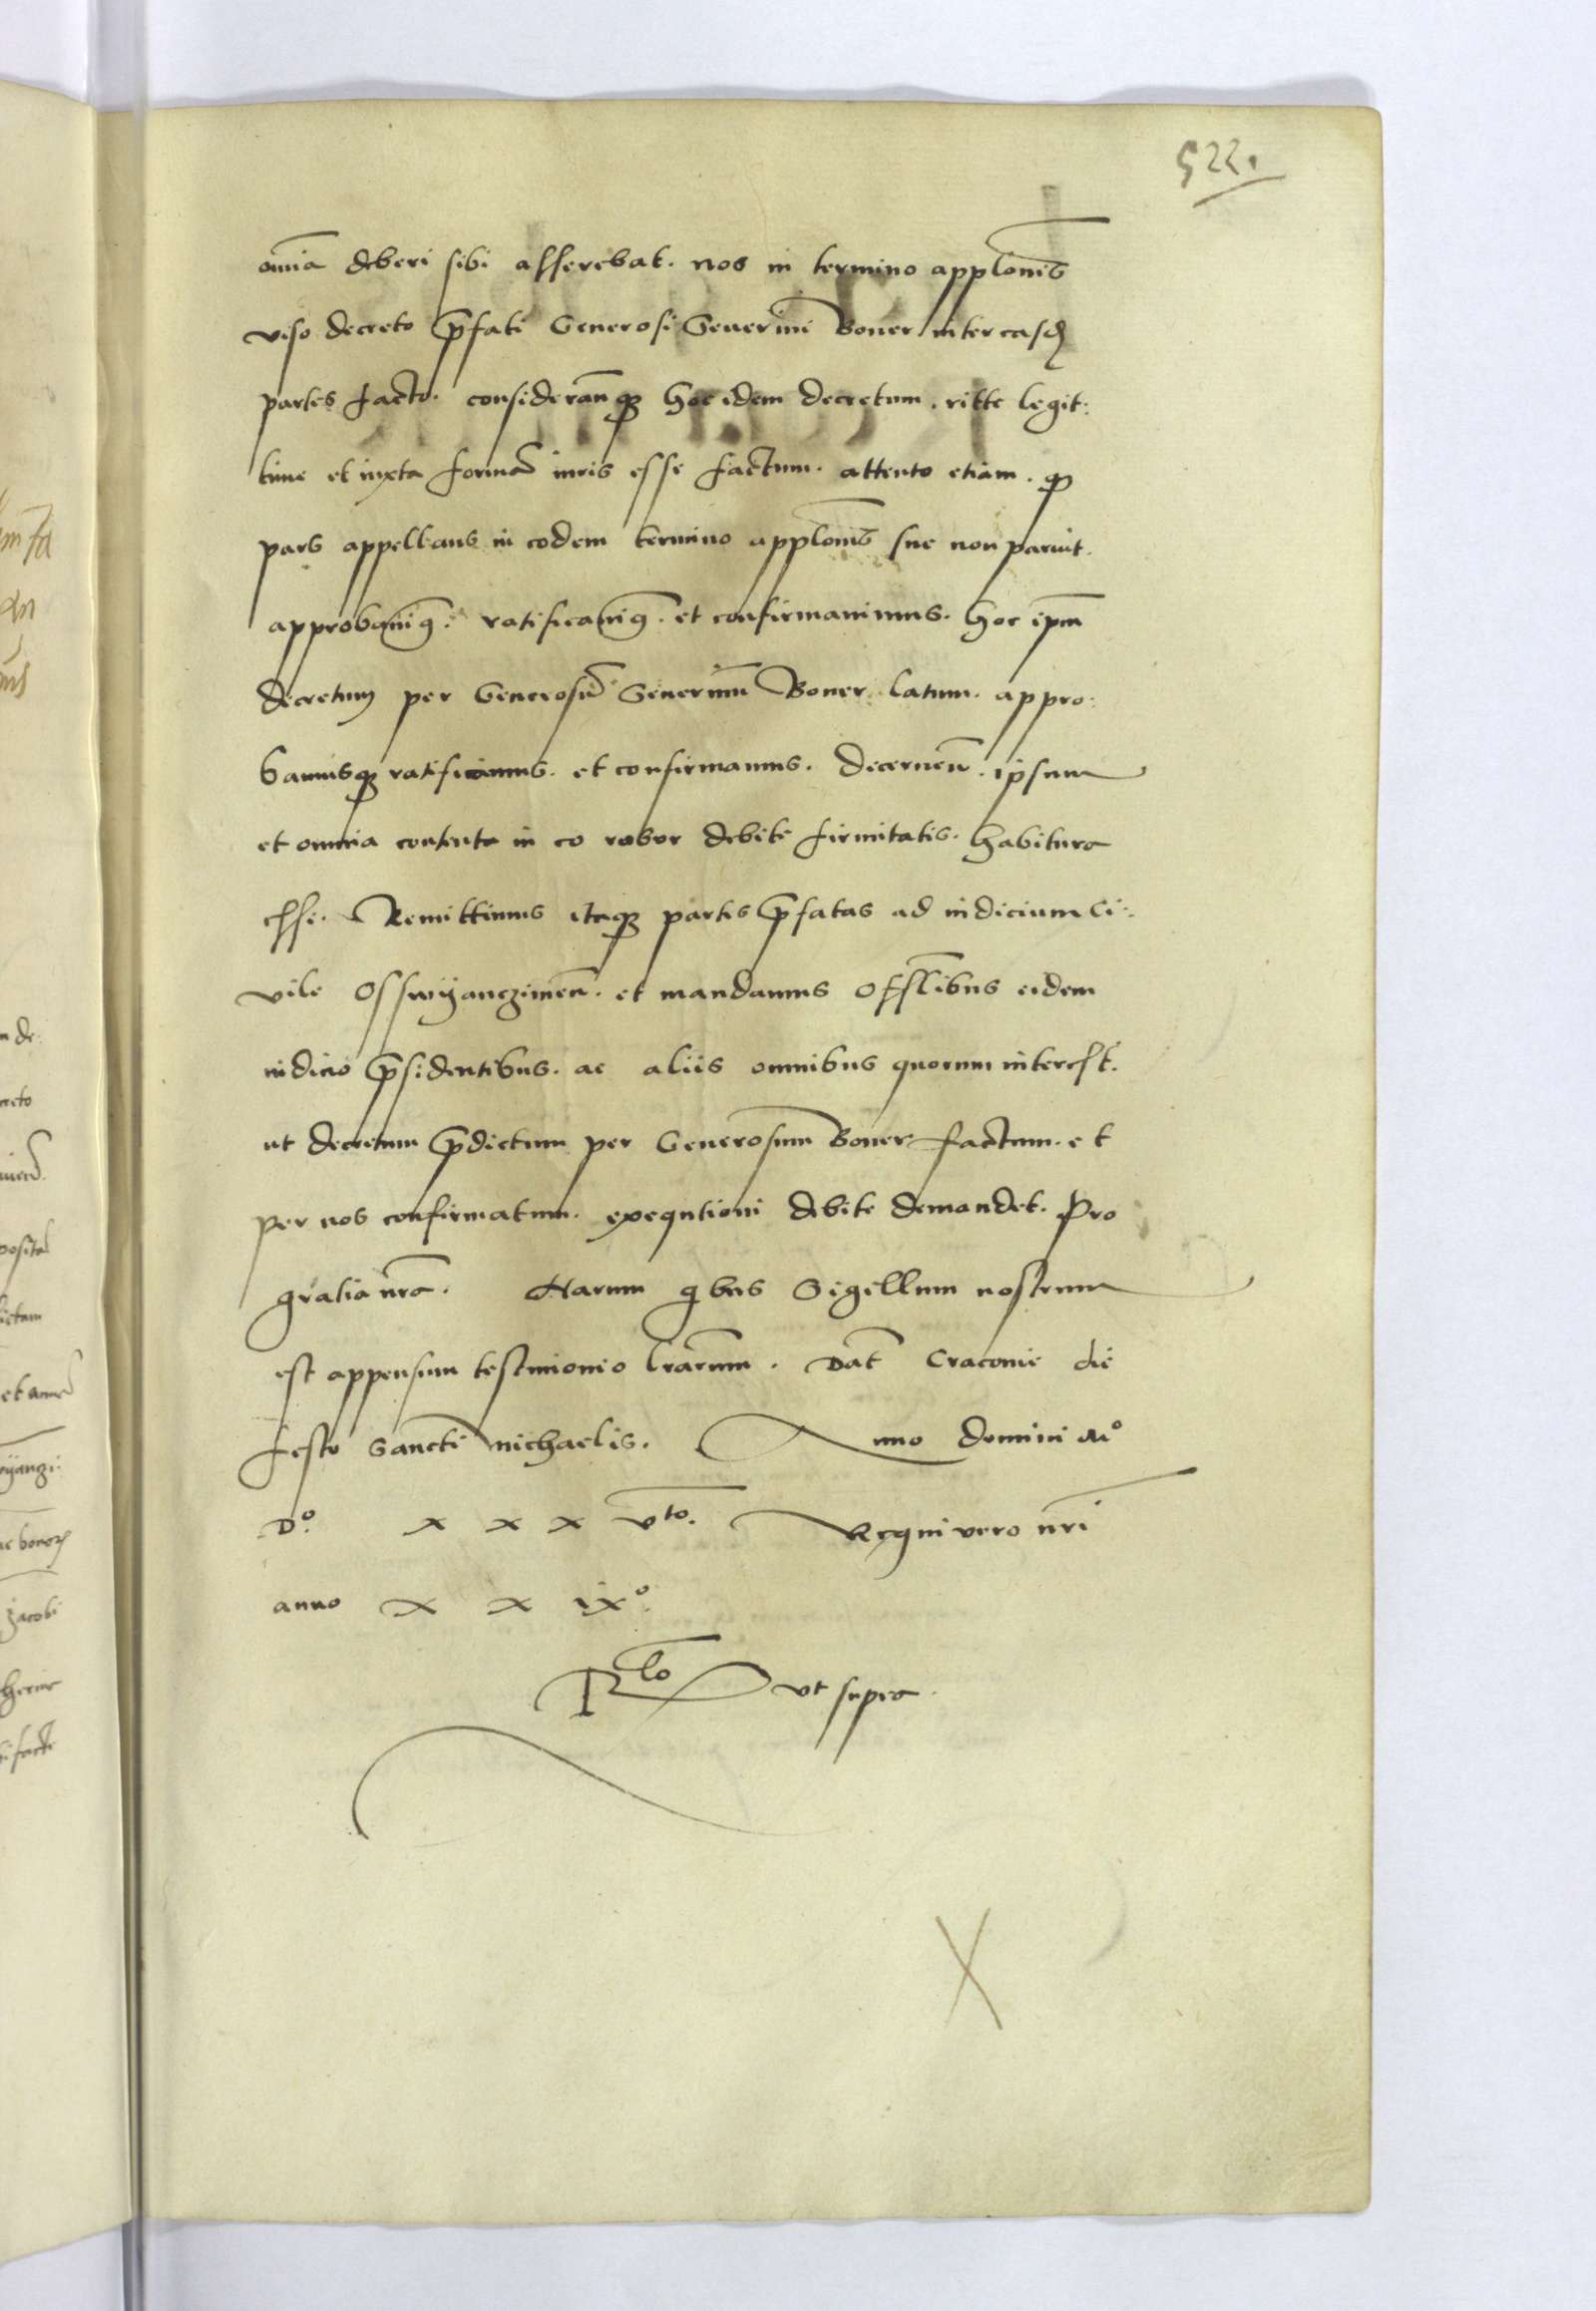 522.
omnia deberi sibi asserebat. nos in termino applonis
viso decreto pfati Generosi Severini Boner inter easd
partes facto. consideranq hoc idem decretum. ritte legit:
time et iuxta forma iuris esse factum. attento etiam. q
pars appellans in eodem termino applonis sue non paruit.
approbavimq. ratificavimq. et confirmavimus. hoc ipm
decretum per Generosu Severinum Boner latum. appro:
bamusq ratificamus. et confirmamus. decernen. ipsum
et omnia contenta in eo robor debite firmitatis. habitura
esse. Remittimus itaq partes pfatas ad iudicium Ci:
vile Osswyanczimen. et mandamus Offlibus eidem
iudicio psidentibus. ac aliis omnibus quorum interest.
ut decretum pdictum per Generosum Boner factum. et
per nos confirmatum. exequtioni debite demandet. Pro
gratia nra. Harum qbus Sigillum nostrum
est appensum testimonio lrarum. Dat Cracovie die
festo Sancti Michaelis. Anno domini Mo
Do. x x x vto. Regni vero nri
anno x x ixo.
Rlo ut supra.